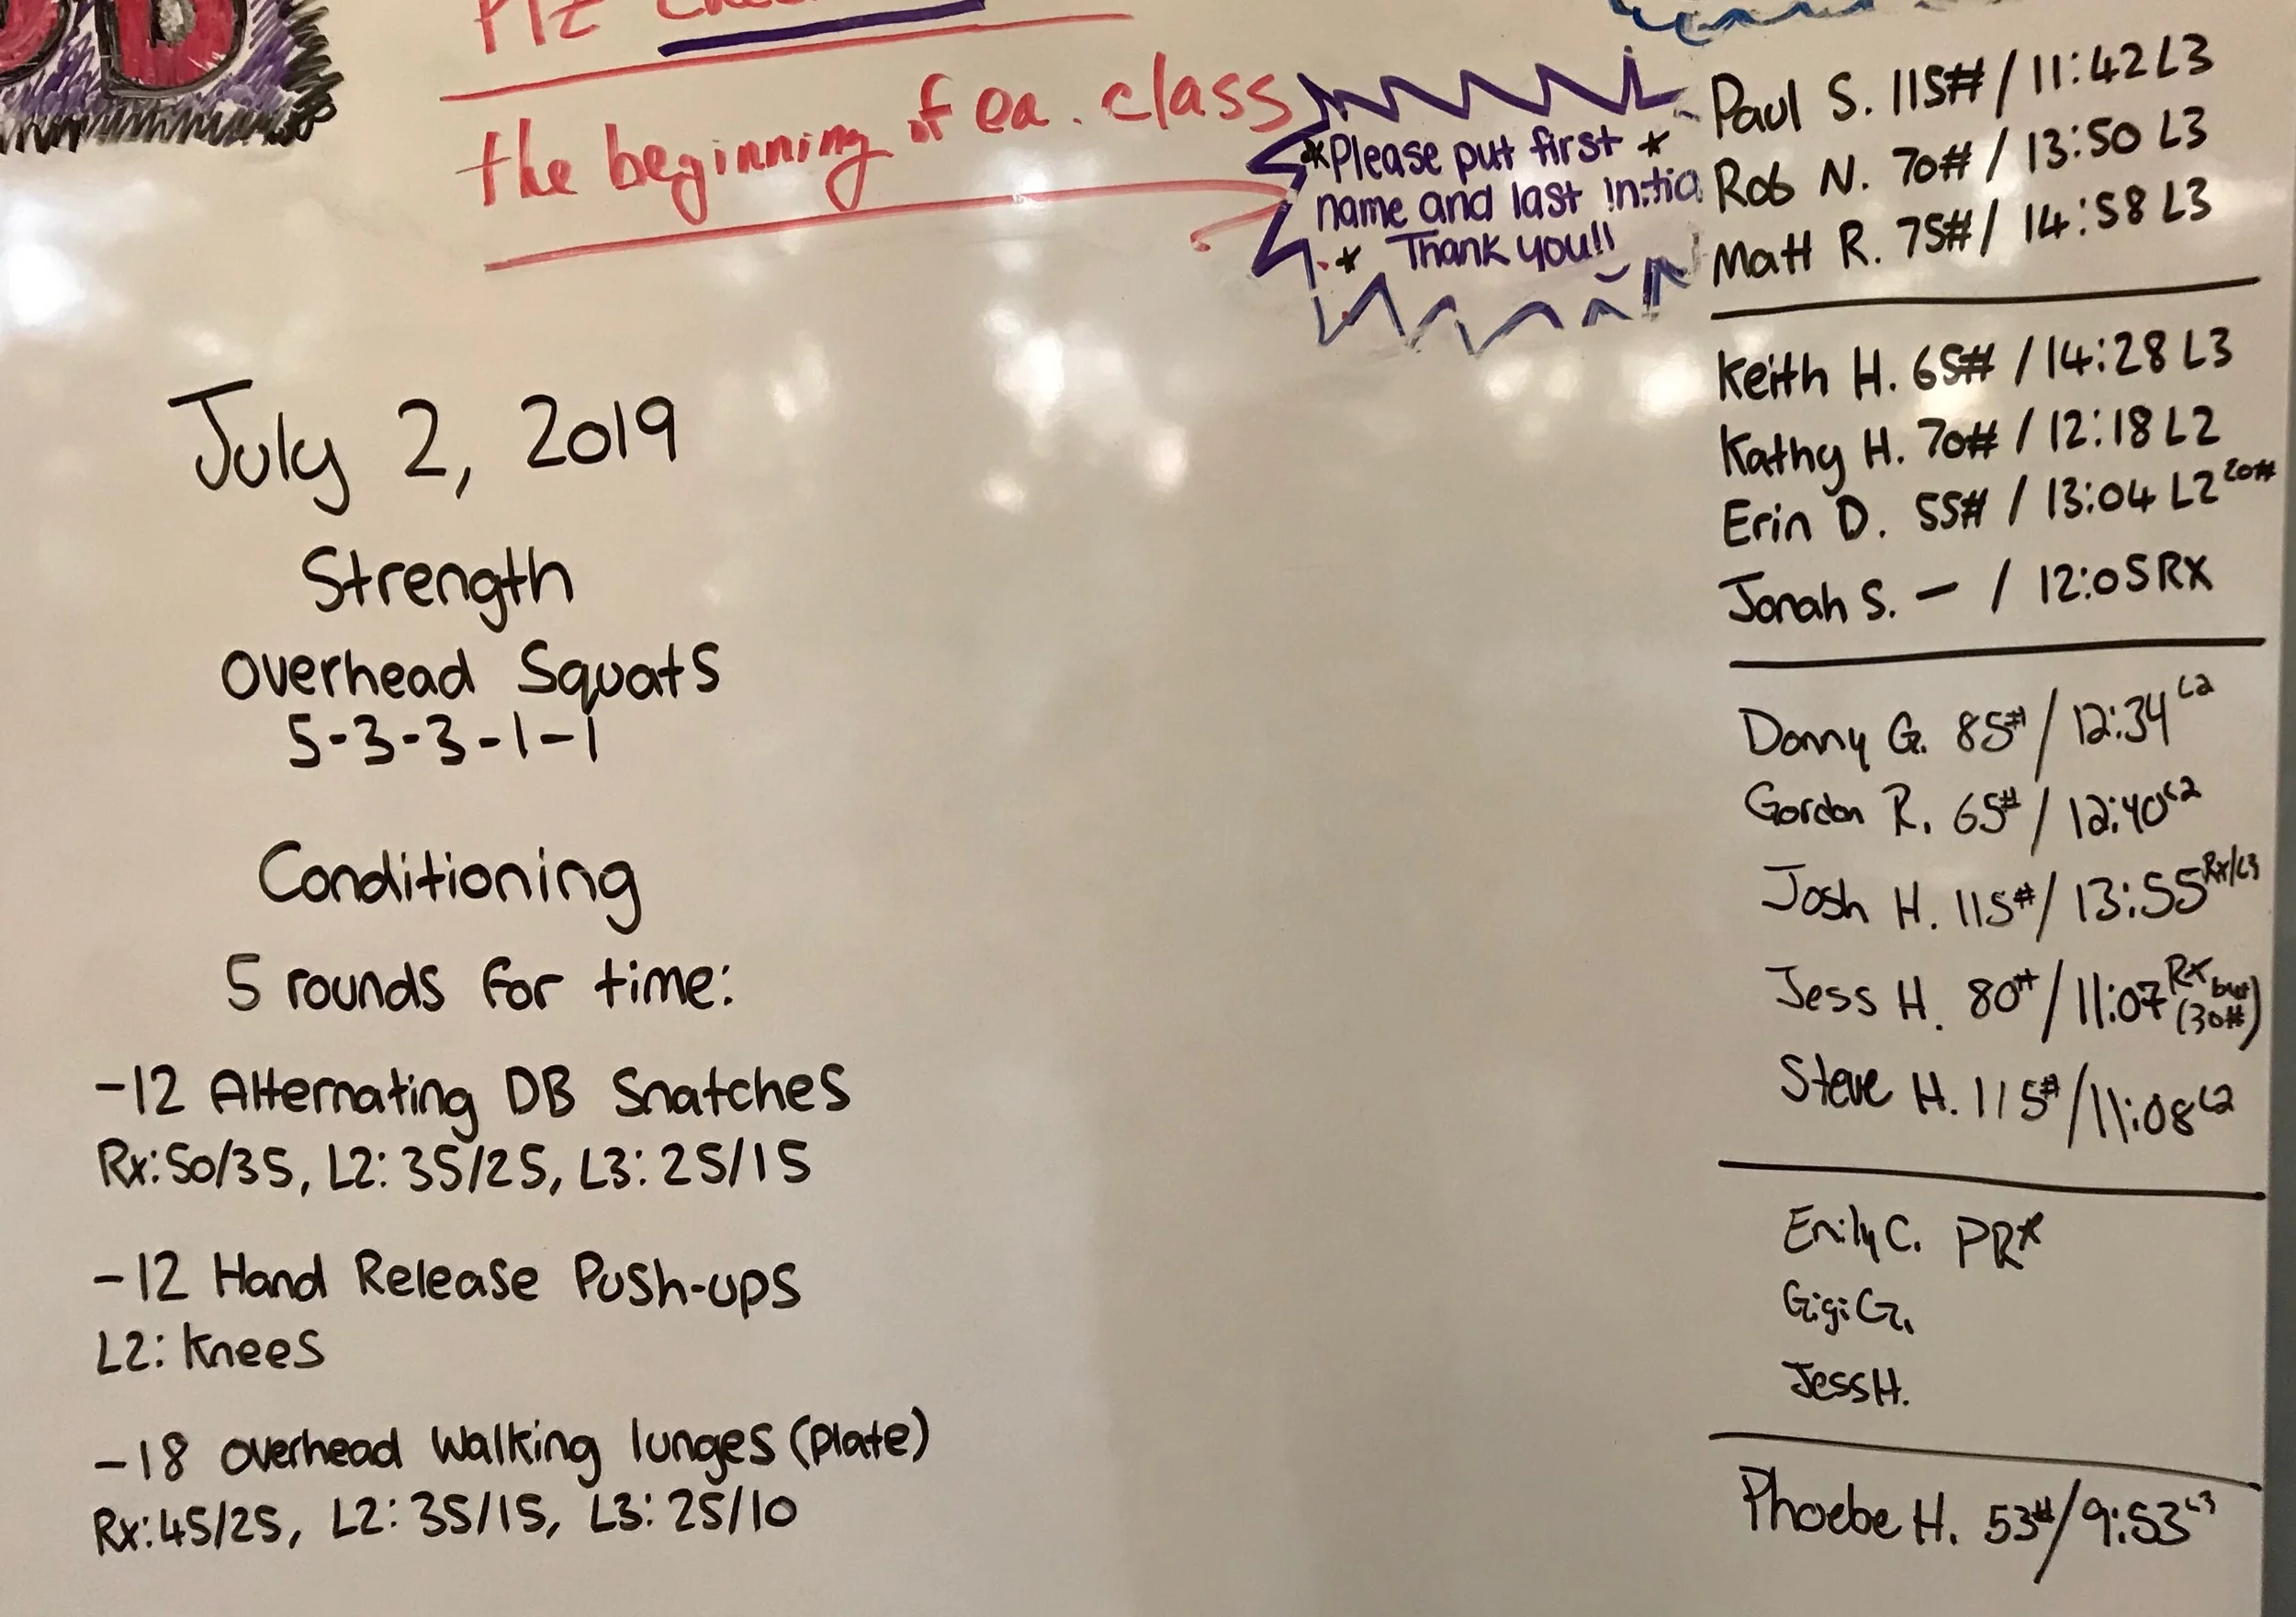 the beginning of ea. class
*Please put first *
name and last initia
* Thank you!!
July 2, 2019
Strength
Overhead Squats
5-3-3-1-1
Conditioning
5 rounds for time:
-12 Alternating DB Snatches
Rx: 50/35, L2: 35/25, L3: 25/15
-12 Hand Release Push-ups
L2: Knees
-18 overhead walking lunges (plate)
Rx: 45/25, L2: 35/15, L3: 25/10
Paul S. 115# / 11:42 L3
Rob N. 70# / 13:50 L3
Matt R. 75# / 14:58 L3
Keith H. 65# / 14:28 L3
Kathy H. 70# / 12:18 L2
Erin D. 55# / 13:04 L2 20#
Jonah S. — / 12:05 RX
Donny G. 85# / 12:34 L2
Gordon R. 65# / 12:40 L2
Josh H. 115# / 13:55 Rx/L3
Jess H. 80# / 11:07 Rx but (30#)
Steve H. 115# / 11:08 L2
Emily C. PR*
Gigi G.
Jess H.
Phoebe H. 53# / 9:53 L3